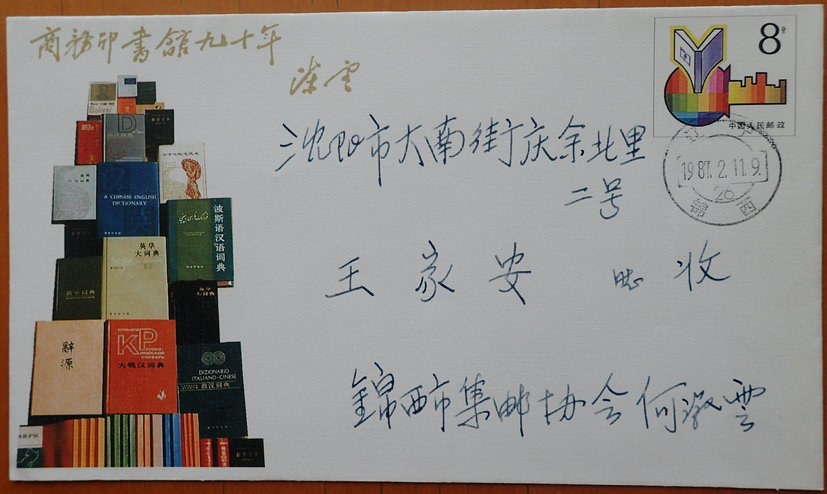 商務印書館九十年
陈云
8分
中国人民邮政
沈阳市大南街庆余北里
二号
1987.2.11.9.
20
锦西
王家安 收
錦西市集邮协会何
A CHINESE ENGLISH
DICTIONARY
波斯语汉语词典
英华
大词典
新华词典
辭源
KP
大俄汉词典
DIZIONARIO
ITALIANO-CINESE
意汉词典